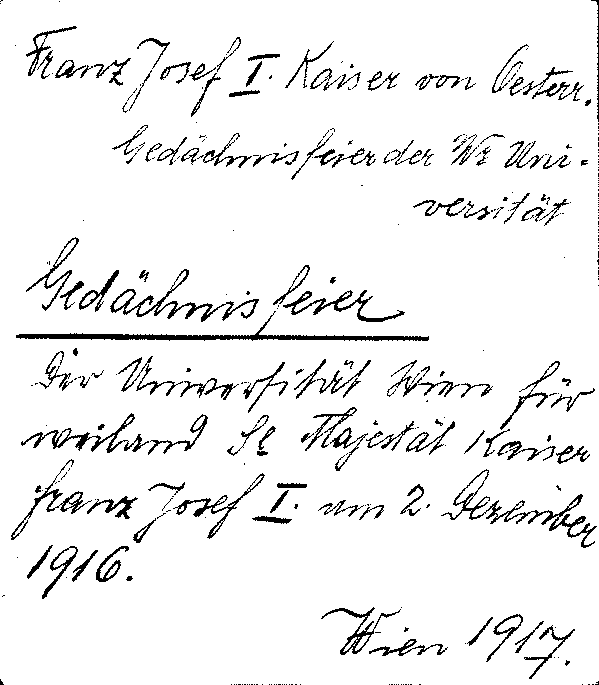 Franz Josef I. Kaiser von Oesterr.
Gedächnisfeier der Wr Uni-
versität
Gedächnisfeier
Der Universität Wien für
weiland Se Majestät Kaiser
Franz Josef I. am 2. Dezember
1916.
Wien 1917.